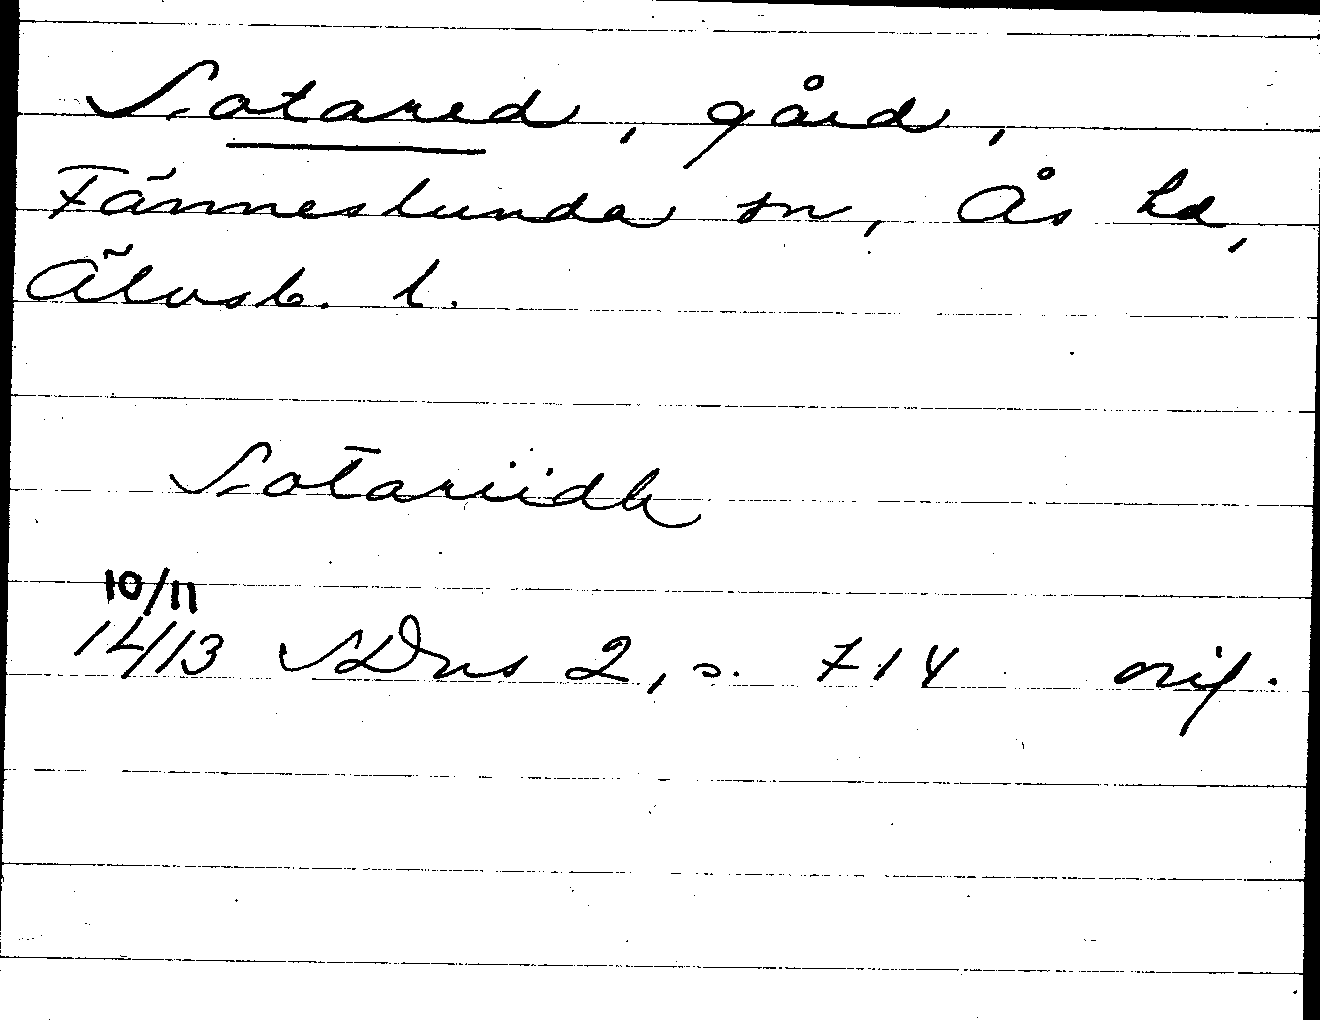 Sotared, gård,
Fänneslunda sn, Ås hd,
Älvsb. l.
Sotariidh
10/11
1413 SDns 2, s. 714 orig.